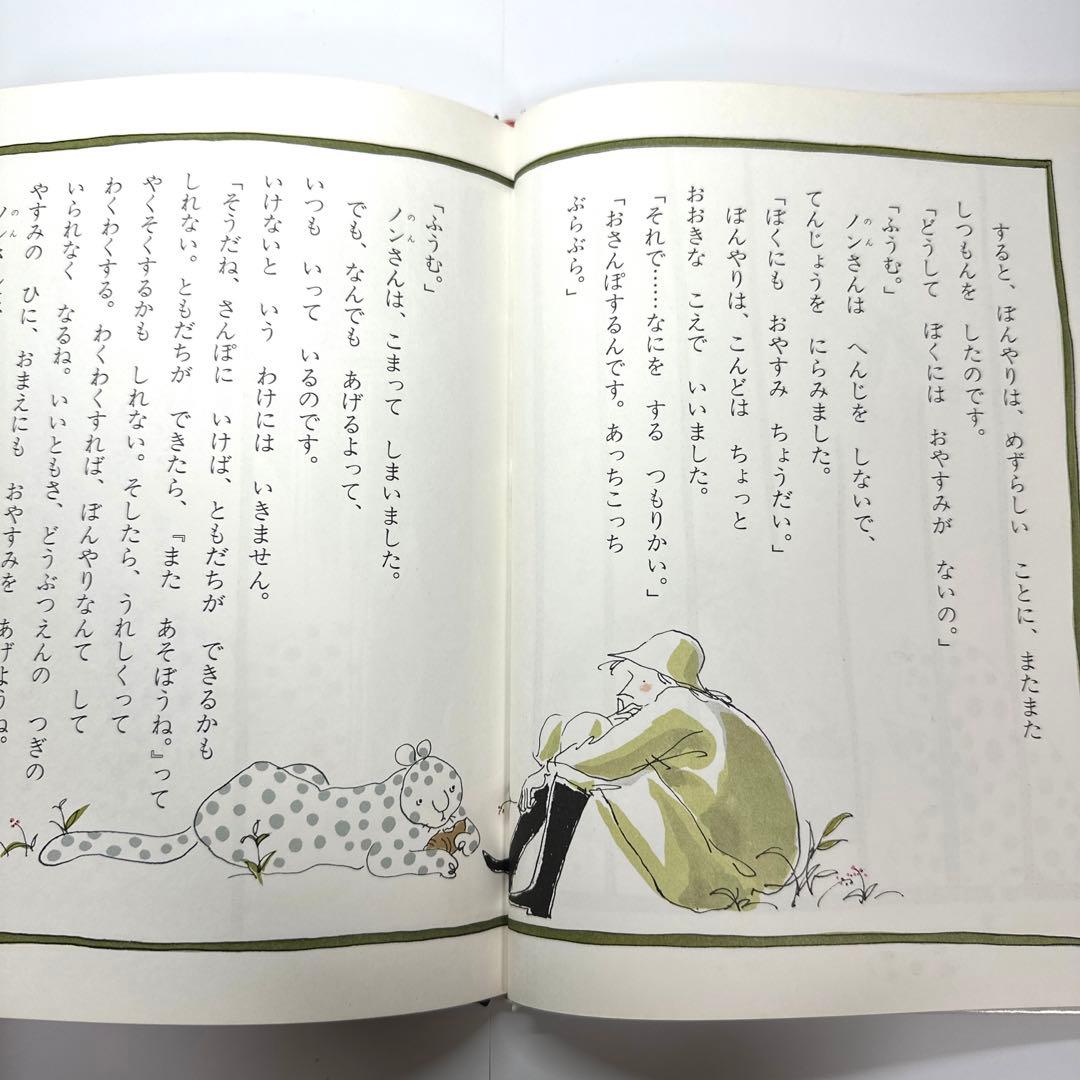 すると、ぼんやりは、めずらしい　ことに、またまた
しつもんを　したのです。
「どうして　ぼくには　おやすみが　ないの。」
「ふうむ。」
ノンさんは　へんじを　しないで、
のん
てんじょうを　にらみました。
「ぼくにも　おやすみ　ちょうだい。」
ぼんやりは、こんどは　ちょっと
おおきな　こえで　いいました。
「それで……なにを　する　つもりかい。」
「おさんぽするんです。あっちこっち
ぶらぶら。」
「ふうむ。」
ノンさんは、こまって　しまいました。
のん
でも、なんでも　あげるよって、
いつも　いって　いるのです。
いけないと　いう　わけには　いきません。
「そうだね、さんぽに　いけば、ともだちが　できるかも
しれない。ともだちが　できたら、『また　あそぼうね。』って
やくそくするかも　しれない。そしたら、うれしくって
わくわくする。わくわくすれば、ぼんやりなんて　して
いられなく　なるね。いいともさ、どうぶつえんの　つぎの
やすみの　ひに、おまえにも　おやすみを　あげようね。